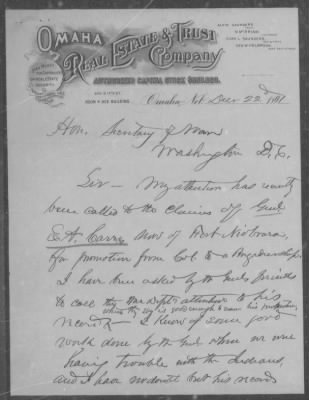 OMAHA
REAL ESTATE & TRUST
COMPANY
AUTHORIZED CAPITAL STOCK
ALVIN SAUNDERS
ROOM 4 BEE BUILDING.
Omaha, Neb Dec 22d
Hon. Secretary of War
Washington D.C.
Sir — My attention has recently
been called to the claims of Genl
E. A. Carr, now of Fort Niobrara,
for promotion from Col to a Brigadiership.
I have been asked by the Genls friends
to call the War Dept's attention to his
record — I know of some good
work done by the Genl when we were
having trouble with the Indians,
and I have no doubt but his record